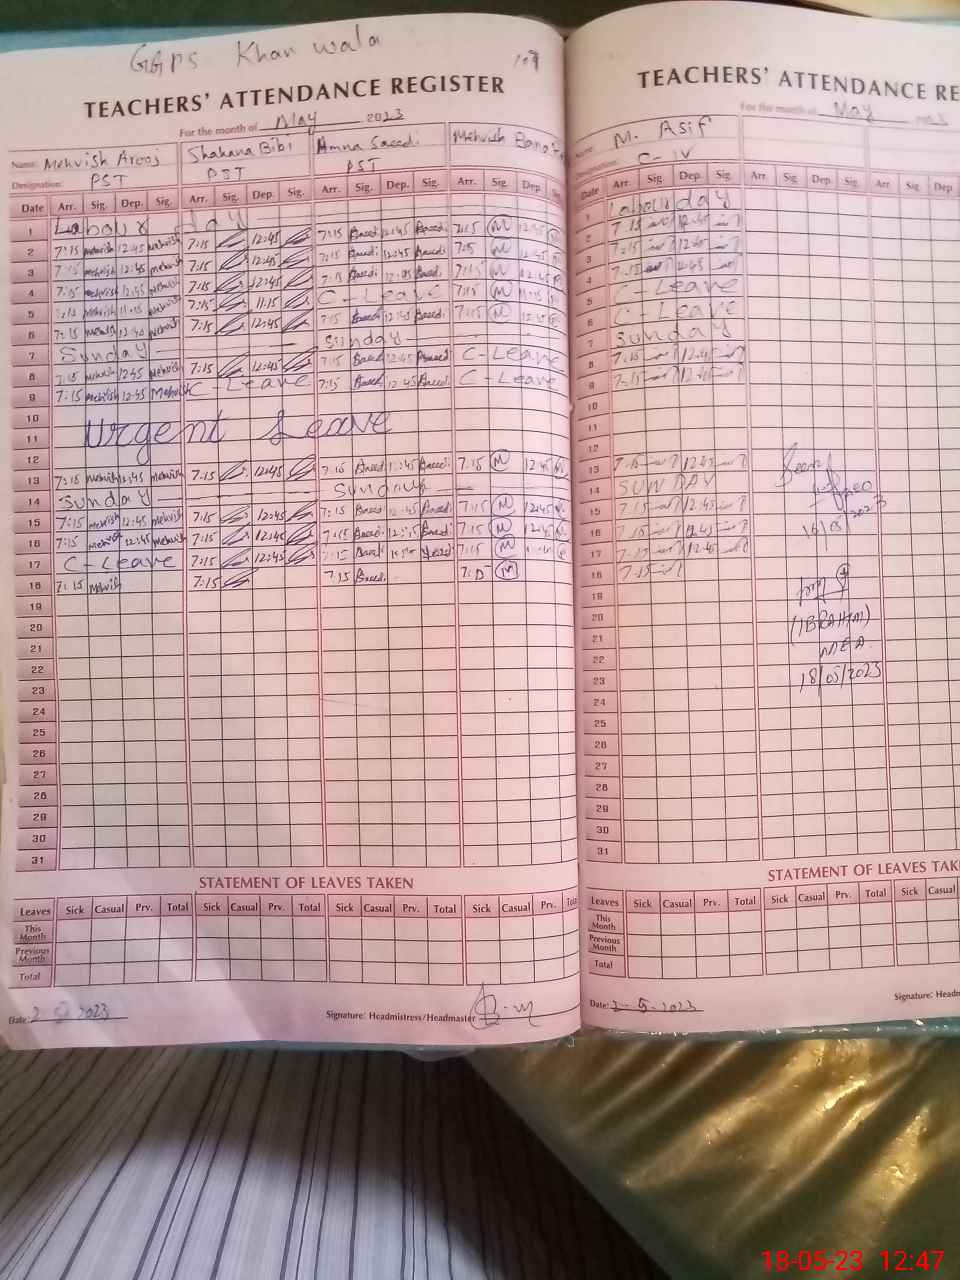 GGPS Khan wala
109
TEACHERS' ATTENDANCE REGISTER
For the month of May 2023
Name: Mehvish Arooj Shahana Bibi Amna Saeedi Mehvish
Designation: PST PST PST
Date Arr. Sig. Dep. Sig. Arr. Sig. Dep. Sig. Arr. Sig. Dep. Sig. Arr. Sig. Dep. Sig.
1 Labour day
2 7:15 mehvish 12:45 mehvish 7:15 12:45 7:15 12:45 7:15 M 12:45
3 7:15 mehvish 12:45 mehvish 7:15 12:45 7:15 12:45 7:15 M 12:45
4 7:15 mehvish 12:45 mehvish 7:15 12:45 7:15 12:45 7:15 M 12:45
5 7:15 mehvish 11:15 mehvish 7:15 11:15 C-Leave 7:15 M 11:15
6 7:15 mehvish 12:45 mehvish 7:15 12:45 7:15 12:45 7:15 M 12:45
7 Sunday Sunday
8 7:15 mehvish 12:45 mehvish 7:15 12:45 7:15 12:45 C-Leave
9 7:15 mehvish 12:45 mehvish C-Leave 7:15 12:45 C-Leave
10
11 Urgent Leave
12
13 7:15 mehvish 12:45 mehvish 7:15 12:45 7:15 12:45 7:15 M 12:45
14 Sunday Sunday
15 7:15 mehvish 12:45 mehvish 7:15 12:45 7:15 12:45 7:15 M 12:45
16 7:15 mehvish 12:45 mehvish 7:15 12:45 7:15 12:45 7:15 M 12:45
17 C-Leave 7:15 12:45 7:15 7:15 M
18 7:15 mehvish 7:15 7:15 7:15 M
19
20
21
22
23
24
25
26
27
28
29
30
31
STATEMENT OF LEAVES TAKEN
Leaves Sick Casual Prv. Total Sick Casual Prv. Total Sick Casual Prv. Total Sick Casual Prv.
This Month
Previous Month
Total
Date: 2-5-2023 Signature: Headmistress/Headmaster
TEACHERS' ATTENDANCE RE
For the month of May 2023
Name: M. Asif
Designation: C-IV
Date Arr. Sig. Dep. Sig. Arr. Sig. Dep. Sig. Arr. Sig. Dep
1 Labour day
2 7:15 12:45
3 7:15 12:45
4 7:15 12:45
5 C-Leave
6 C-Leave
7 Sunday
8 7:15 12:45
9 7:15 12:45
10
11
12
13 7:15 12:45
14 SUNDAY
15 7:15 12:45
16 7:15 12:45 16/05/2023
17 7:15 12:45
18 7:15
19
20 (IBRAHIM)
21
22 MEA
23 18/05/2023
24
25
26
27
28
29
30
31
STATEMENT OF LEAVES TAK
Leaves Sick Casual Prv. Total Sick Casual Prv. Total Sick Casual
This Month
Previous Month
Total
Date: 2-5-2023 Signature: Headm
18-05-23 12:47